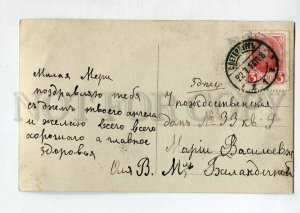 Милая Мери
поздравляю тебя
съ днемъ твоего ангела
и желаю всего всего
хорошаго а главное
здоровья
Оля В.
С.ПЕТЕРБУРГЪ
3 3
Здесь
Рождественская
домъ № 33 кв. 9
Марiи Васильевнѣ